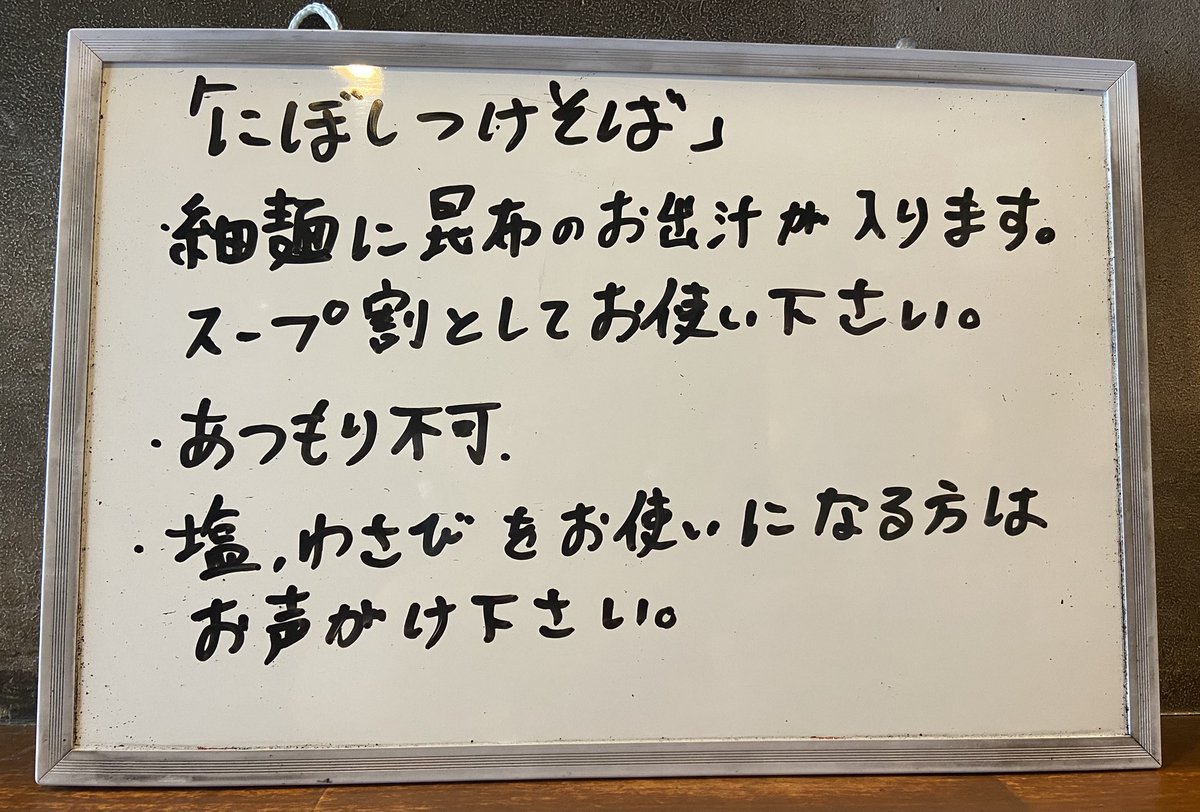 「にぼしつけそば」
・細麺に昆布のお出汁が入ります。
スープ割としてお使い下さい。
・あつもり不可.
・塩,わさびをお使いになる方は
お声がけ下さい。